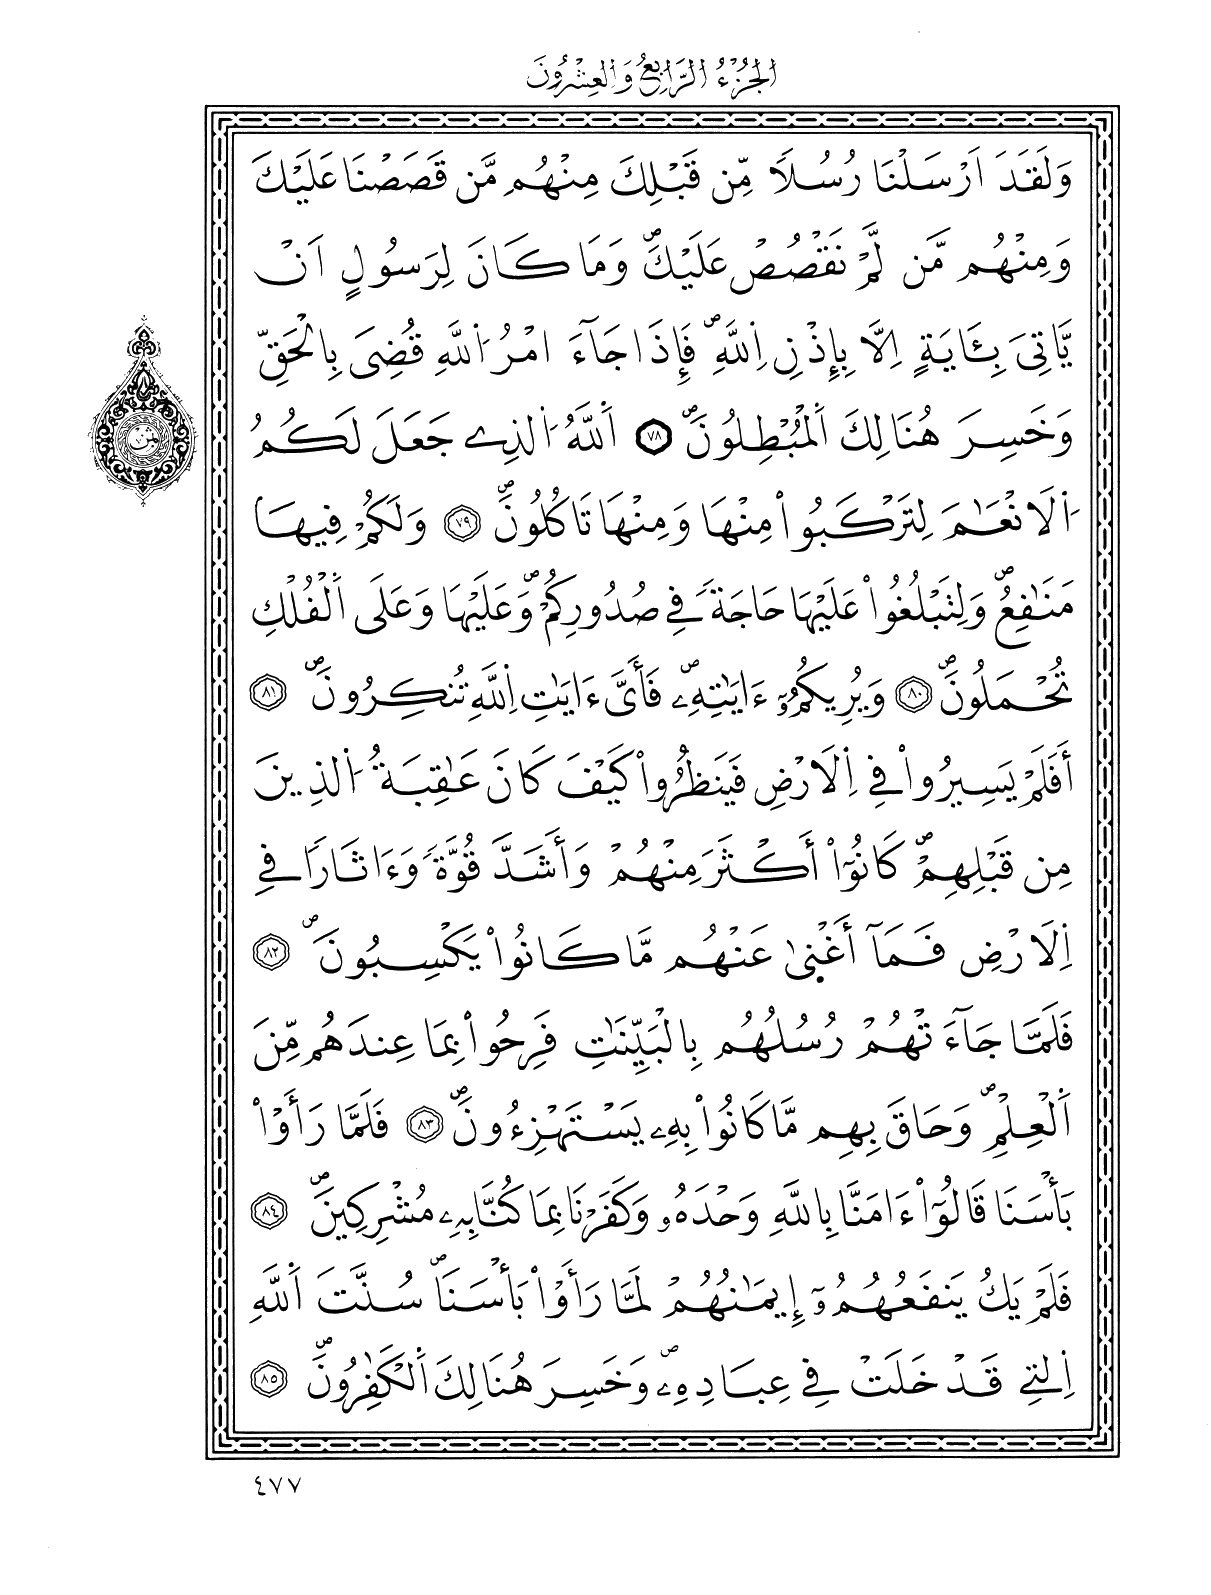 الجُزْءُ الرَّابِعُ وَالعِشْرُونَ
وَلَقَدَ اَرْسَلْنَا رُسُلٗا مِّن قَبْلِكَ مِنْهُم مَّن قَصَصْنَا عَلَيْكَ
وَمِنْهُم مَّن لَّمْ نَقْصُصْ عَلَيْكَۖ وَمَا كَانَ لِرَسُولٍ اَنْ
يَّاتِيَ بِـَٔايَةٍ اِلَّا بِإِذْنِ اِ۬للَّهِۖ فَإِذَا جَآءَ امْرُ اُ۬للَّهِ قُضِيَ بِالْحَقِّ
وَخَسِرَ هُنَالِكَ اَ۬لْمُبْطِلُونَۖ ٧٨ اَ۬للَّهُ اُ۬لذِے جَعَلَ لَكُمُ
اُ۬لَانْعَٰمَ لِتَرْكَبُواْ مِنْهَا وَمِنْهَا تَاكُلُونَۖ ٧٩ وَلَكُمْ فِيهَا
مَنَٰفِعُۖ وَلِتَبْلُغُواْ عَلَيْهَا حَاجَةٗ فِے صُدُورِكُمْۖ وَعَلَيْهَا وَعَلَى اَ۬لْفُلْكِ
تُحْمَلُونَۖ ٨٠ وَيُرِيكُمُۥٓ ءَايَٰتِهِۦۖ فَأَيَّ ءَايَٰتِ اِ۬للَّهِ تُنكِرُونَۖ ٨١
أَفَلَمْ يَسِيرُواْ فِے اِ۬لَارْضِ فَيَنظُرُواْ كَيْفَ كَانَ عَٰقِبَةُ اُ۬لذِينَ
مِن قَبْلِهِمْۖ كَانُوٓاْ أَكْثَرَ مِنْهُمْ وَأَشَدَّ قُوَّةٗ وَءَاثَارٗا فِے
اِ۬لَارْضِ فَمَآ أَغْنۭيٰ عَنْهُم مَّا كَانُواْ يَكْسِبُونَۖ ٨٢
فَلَمَّا جَآءَتْهُمْ رُسُلُهُم بِالْبَيِّنَٰتِ فَرِحُواْ بِمَا عِندَهُم مِّنَ
اَ۬لْعِلْمِۖ وَحَاقَ بِهِم مَّا كَانُواْ بِهِۦ يَسْتَهْزِءُونَۖ ٨٣ فَلَمَّا رَأَوْاْ
بَأْسَنَا قَالُوٓاْ ءَامَنَّا بِاللَّهِ وَحْدَهُۥ وَكَفَرْنَا بِمَا كُنَّا بِهِۦ مُشْرِكِينَۖ ٨٤
فَلَمْ يَكُ يَنفَعُهُمُۥٓ إِيمَٰنُهُمْ لَمَّا رَأَوْاْ بَأْسَنَاۖ سُنَّتَ اَ۬للَّهِ
اِ۬لتِے قَدْ خَلَتْ فِے عِبَادِهِۦۖ وَخَسِرَ هُنَالِكَ اَ۬لْكَٰفِرُونَۖ ٨٥
٤٧٧